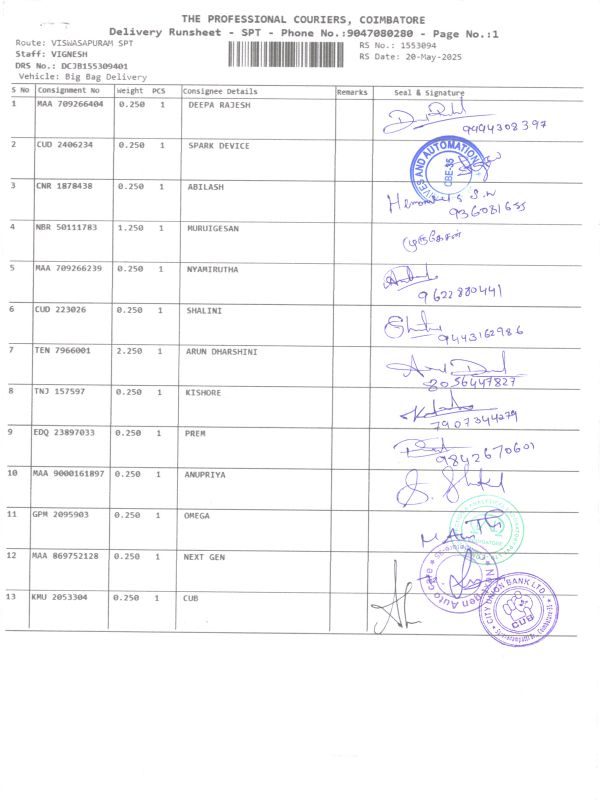 THE PROFESSIONAL COURIERS, COIMBATORE
Delivery Runsheet - SPT - Phone No.:9047080280 - Page No.:1
Route: VISWASAPURAM SPT
RS No.: 1553094
Staff: VIGNESH
RS Date: 20-May-2025
DRS No.: DCJB155309401
Vehicle: Big Bag Delivery
S No Consignment No Weight PCS Consignee Details Remarks Seal & Signature
1 MAA 709266404 0.250 1 DEEPA RAJESH
9444308397
2 CUD 2406234 0.250 1 SPARK DEVICE
VES AND AUTOMATION
CBE-35
3 CNR 1878438 0.250 1 ABILASH
4 NBR 50111783 1.250 1 MURUIGESAN
முருகேசன்
5 MAA 709266239 0.250 1 NYAMIRUTHA
9622880441
6 CUD 223026 0.250 1 SHALINI
9443162986
7 TEN 7966001 2.250 1 ARUN DHARSHINI
8056447827
8 TNJ 157597 0.250 1 KISHORE
7907344279
9 EDQ 23897033 0.250 1 PREM
9842670601
10 MAA 9000161897 0.250 1 ANUPRIYA
11 GPM 2095903 0.250 1 OMEGA
12 MAA 869752128 0.250 1 NEXT GEN
Next Gen Auto care
13 KMU 2053304 0.250 1 CUB
CITY UNION BANK LTD.
CUB